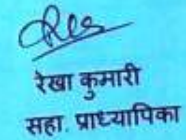 रेखा कुमारी
सहा. प्राध्यापिका